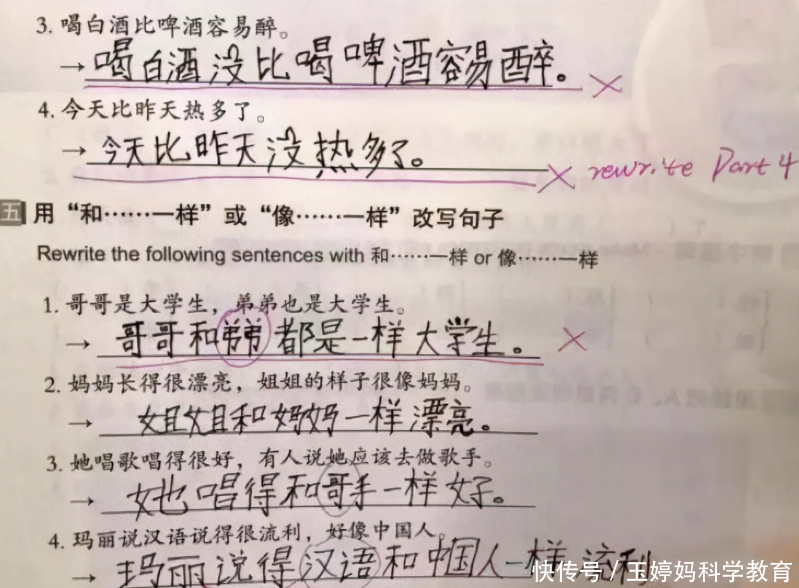 3. 喝白酒比啤酒容易醉。
→ 喝白酒没比喝啤酒容易醉。 ×
4. 今天比昨天热多了。
→ 今天比昨天没热多了。 × rewrite Part 4
五 用“和……一样”或“像……一样”改写句子
Rewrite the following sentences with 和……一样 or 像……一样
1. 哥哥是大学生，弟弟也是大学生。
→ 哥哥和弟弟都是一样大学生。 ×
2. 妈妈长得很漂亮，姐姐的样子很像妈妈。
→ 姐姐和妈妈一样漂亮。
3. 她唱歌唱得很好，有人说她应该去做歌手。
→ 她唱得和哥手一样好。
4. 玛丽说汉语说得很流利，好像中国人。
→ 玛丽说得汉语和中国人一样流利
快传号／玉婷妈科学教育